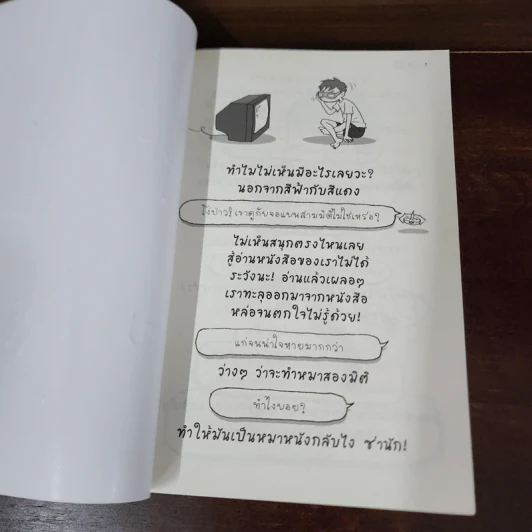 ทำไมไม่เห็นมีอะไรเลยวะ?
นอกจากสีฟ้ากับสีแดง
โง่ป่าว? เขาดูกับจอแบนสามมิติไม่ใช่เหรอ?
ไม่เห็นสนุกตรงไหนเลย
สู้อ่านหนังสือของเราไม่ได้
ระวังนะ! อ่านแล้วเผลอๆ
เราทะลุออกมาจากหนังสือ
หล่อจนตกใจไม่รู้ด้วย!
แก่จนน่าใจหายมากกว่า
ว่างๆ ว่าจะทำหมาสองมิติ
ทำไงบอย?
ทำให้มันเป็นหมาหนังกลับไง ชานัก!